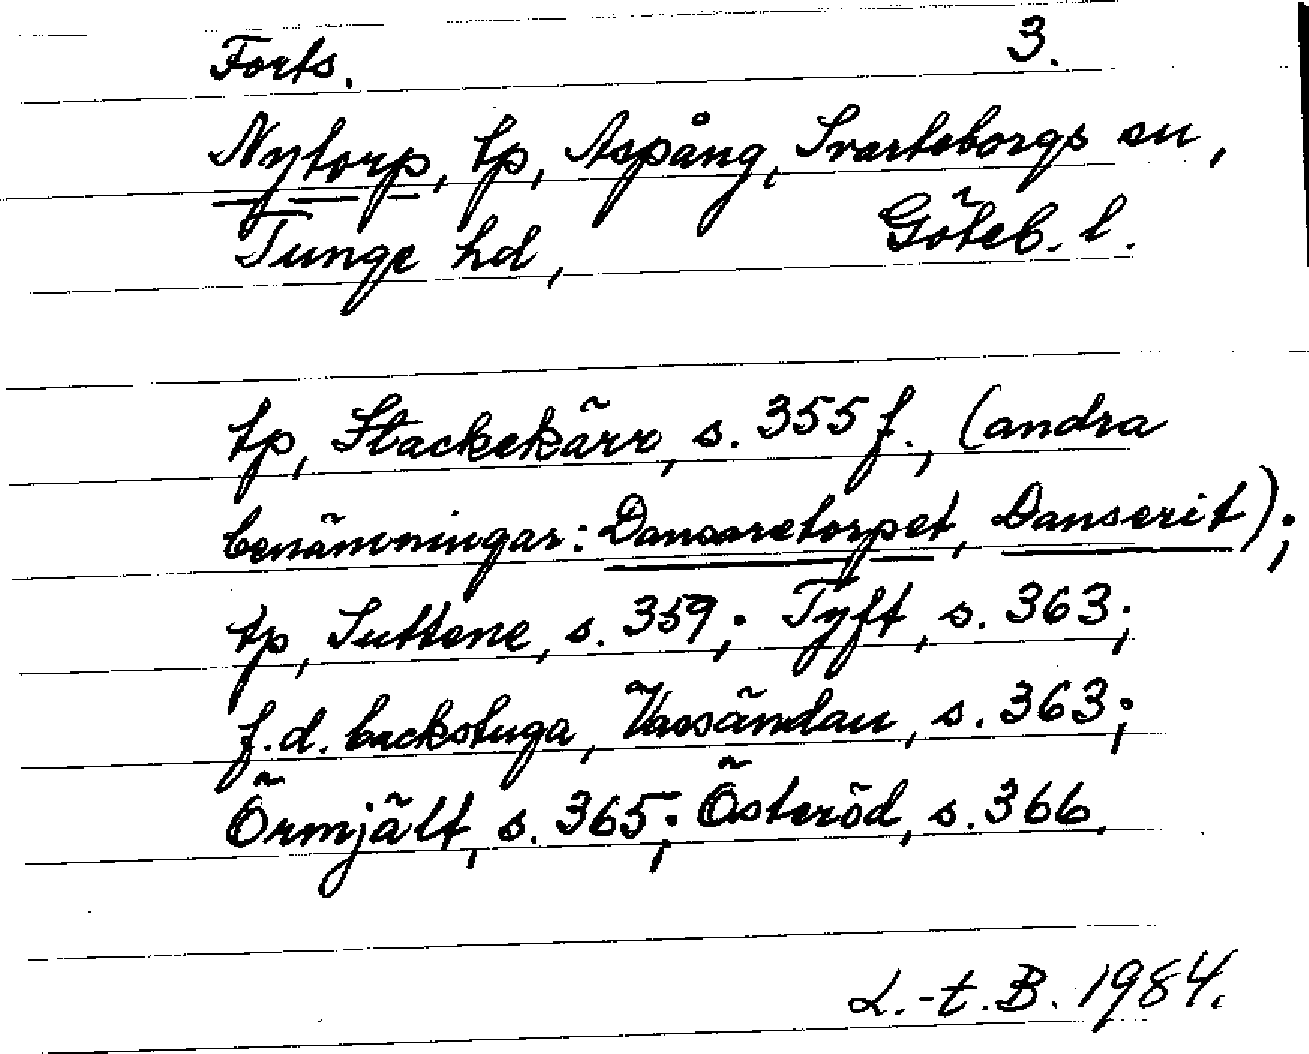 Forts. 3.
Nytorp, tp, Aspång, Svarteborgs sn,
Tunge hd, Göteb. l.
tp, Stackekärr, s. 355 f., (andra
benämningar: Dansaretorpet, Danserit);
tp, Suttene, s. 359; Tyft, s. 363;
f.d. backstuga, Vassändan, s. 363;
Örmjält, s. 365; Österöd, s. 366.
L.-t. B. 1984.